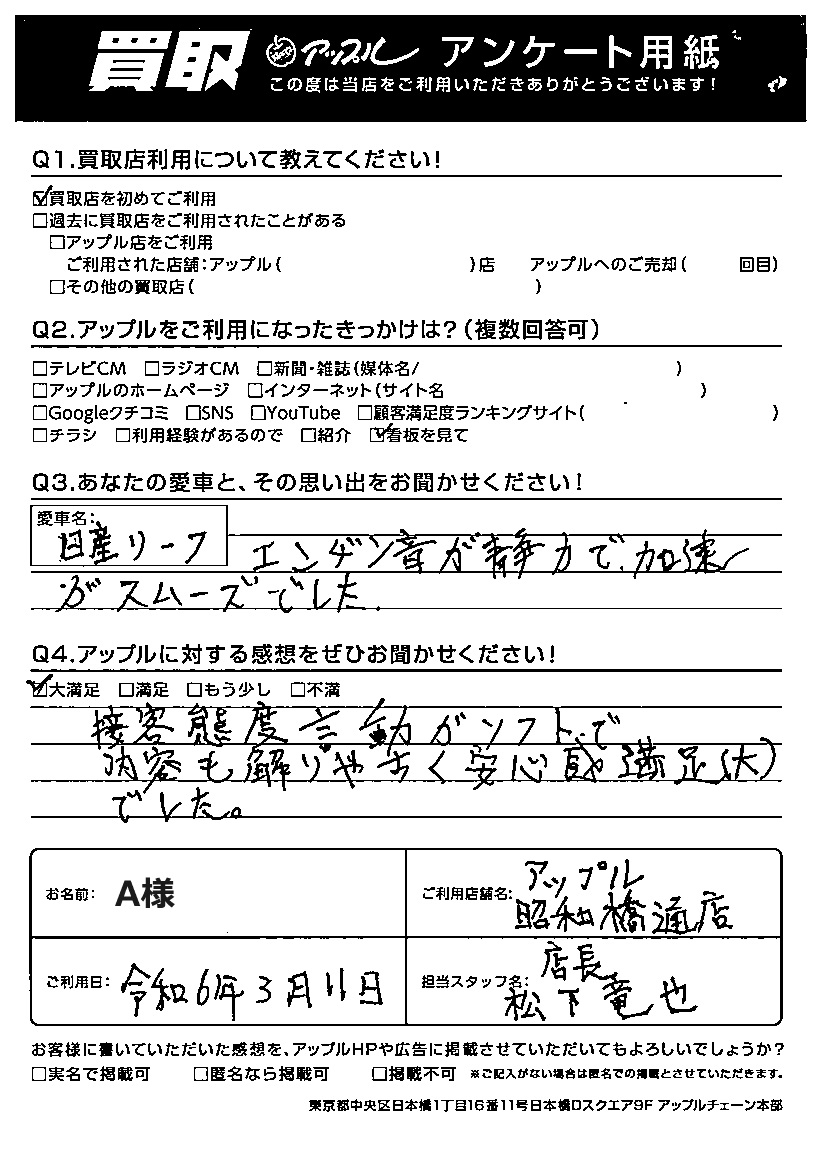 買取 アップル アンケート用紙
この度は当店をご利用いただきありがとうございます!
Q1.買取店利用について教えてください!
☑買取店を初めてご利用
□過去に買取店をご利用されたことがある
□アップル店をご利用
ご利用された店舗:アップル( )店 アップルへのご売却( 回目)
□その他の買取店( )
Q2.アップルをご利用になったきっかけは?(複数回答可)
□テレビCM □ラジオCM □新聞・雑誌(媒体名/ )
□アップルのホームページ □インターネット(サイト名 )
□Googleクチコミ □SNS □YouTube □顧客満足度ランキングサイト( )
□チラシ □利用経験があるので □紹介 ☑看板を見て
Q3.あなたの愛車と、その思い出をお聞かせください!
愛車名:
日産リーフ エンジン音が静かで、加速
がスムーズでした。
Q4.アップルに対する感想をぜひお聞かせください!
☑大満足 □満足 □もう少し □不満
接客態度言動がソフトで
内容も解りやすく安心感満足(大)
でした。
お名前: A様
ご利用店舗名: アップル
昭和橋通店
ご利用日: 令和6年3月11日
担当スタッフ名: 店長
松下竜也
お客様に書いていただいた感想を、アップルHPや広告に掲載させていただいてもよろしいでしょうか?
□実名で掲載可 □匿名なら掲載可 □掲載不可 ※ご記入がない場合は匿名での掲載とさせていただきます。
東京都中央区日本橋1丁目16番11号日本橋Dスクエア9F アップルチェーン本部